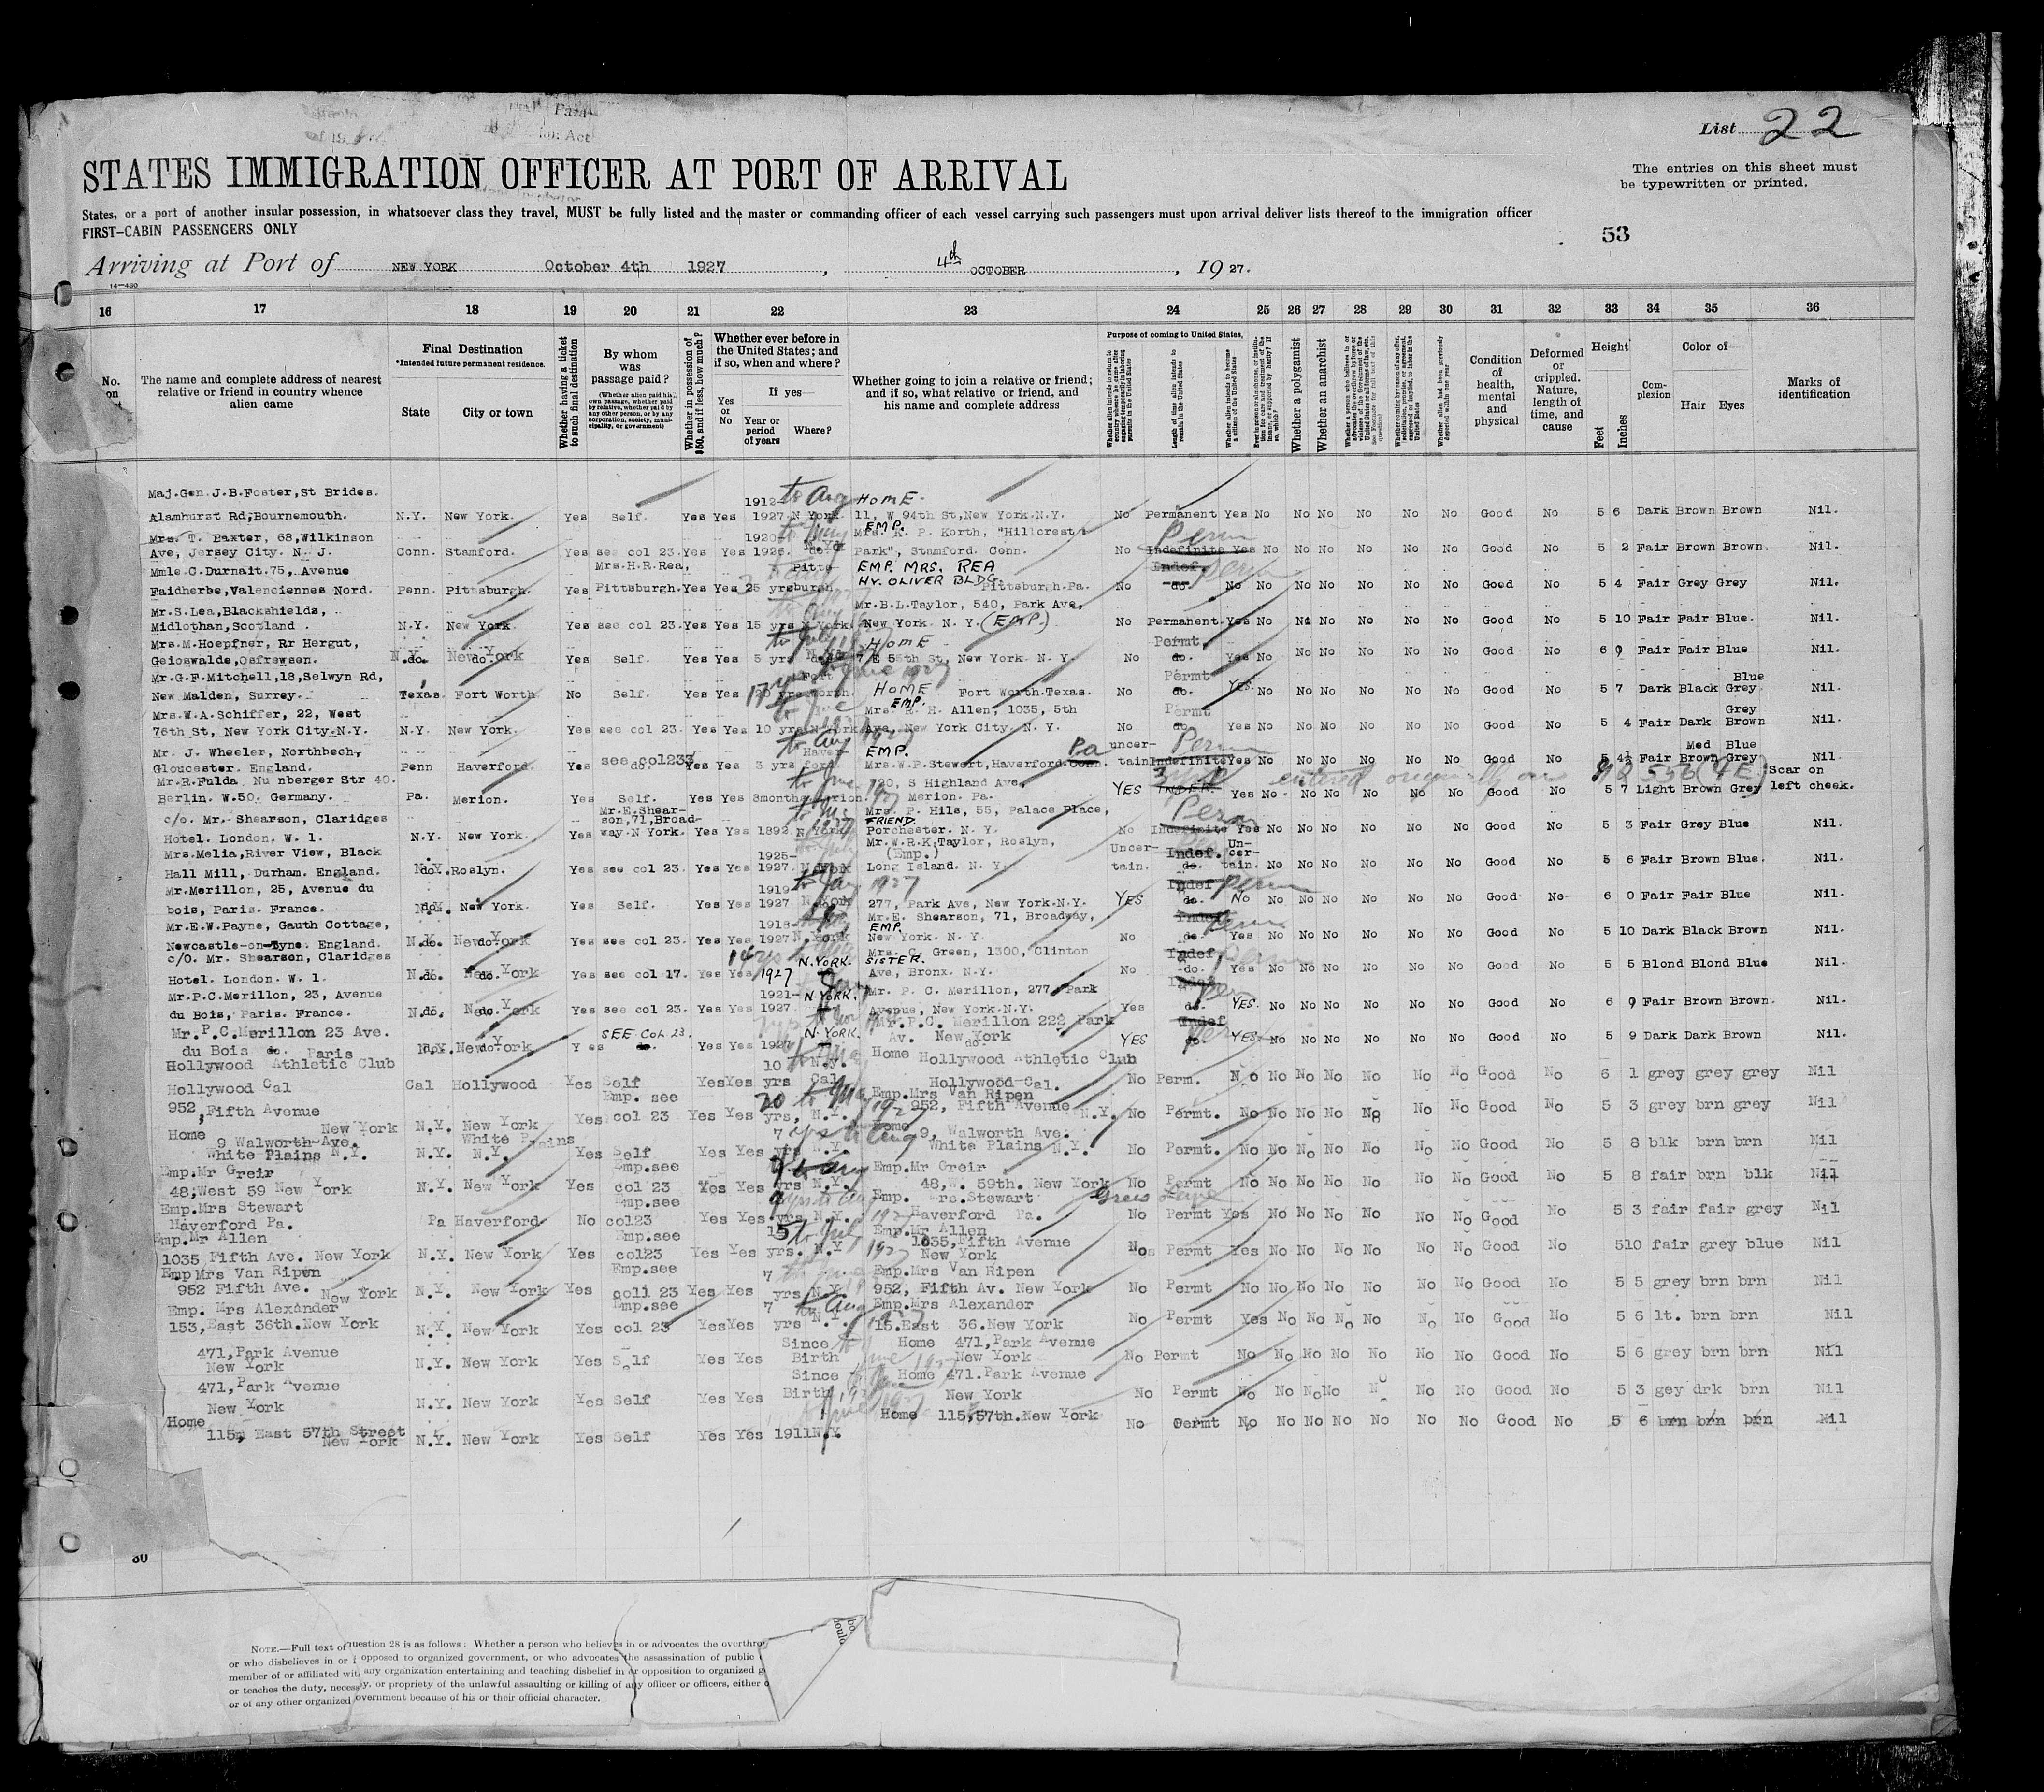 List 22
STATES IMMIGRATION OFFICER AT PORT OF ARRIVAL
The entries on this sheet must
be typewritten or printed.
States, or a port of another insular possession, in whatsoever class they travel, MUST be fully listed and the master or commanding officer of each vessel carrying such passengers must upon arrival deliver lists thereof to the immigration officer
FIRST-CABIN PASSENGERS ONLY
53
Arriving at Port of NEW YORK October 4th 1927, 4th OCTOBER, 19 27.
14-430
16 17 18 19 20 21 22 23 24 25 26 27 28 29 30 31 32 33 34 35 36
No. on
The name and complete address of nearest relative or friend in country whence alien came
Final Destination
*Intended future permanent residence.
State City or town
Whether having a ticket to such final destination
By whom was passage paid?
(Whether alien paid his own passage, whether paid by relative, whether paid by any other person, or by any corporation, society, municipality, or government)
Whether in possession of $50, and if less, how much?
Whether ever before in the United States; and if so, when and where?
Yes or No
If yes—
Year or period of years Where?
Whether going to join a relative or friend; and if so, what relative or friend, and his name and complete address
Purpose of coming to United States.
Length of time alien intends to remain in the United States
Whether alien intends to become a citizen of the United States
Whether a polygamist
Whether an anarchist
Whether alien had been previously deported within one year
Condition of health, mental and physical
Deformed or crippled. Nature, length of time, and cause
Height
Feet Inches
Complexion
Color of—
Hair Eyes
Marks of identification
Maj.Gen.J.B.Foster,St Brides. 1912- to Aug HOME.
Alamhurst Rd,Bournemouth. N.Y. New York. Yes Self. Yes Yes 1927. N York. 11, W 94th St,New York.N.Y. No Permanent Yes No No No No No No Good No 5 6 Dark Brown Brown Nil.
Mrs. T. Baxter, 68,Wilkinson 1920- EMP. Mrs. K. P. Korth, "Hillcrest Perm
Ave, Jersey City. N. J. Conn. Stamford. Yes see col 23. Yes Yes 1926. do. Park", Stamford. Conn. No Indefinite Yes No No No No No No Good No 5 2 Fair Brown Brown. Nil.
Mmle.C.Durnait.75, Avenue Mrs.H.R.Rea, Pitts- EMP. MRS. REA Indef.
Faidherbe,Valenciennes Nord. Penn. Pittsburgh. Yes Pittsburgh. Yes Yes 25 yrs burgh. HY. OLIVER BLDG. Pittsburgh.Pa. No do. No No No No No No No Good No 5 4 Fair Grey Grey Nil.
Mr.S.Lea,Blackshields, Mr.B.L.Taylor, 540, Park Ave,
Midlothan,Scotland. N.Y. New York. Yes see col 23. Yes Yes 15 yrs N York. New York. N. Y. (EMP.) No Permanent Yes No No No No No No Good No 5 10 Fair Fair Blue. Nil.
Mrs.M.Hoepfner, Rr Hergut, to July HOME Permt
Geioswalde,Osfrewsen. N.Y. New York Yes Self. Yes Yes 5 yrs 7 E 55th St, New York. N. Y. No do. Yes No No No No No No Good No 6 0 Fair Fair Blue Nil.
Mr.G.F.Mitchell,18,Selwyn Rd, Fort June 1927 Permt Blue
New Malden, Surrey. Texas. Fort Worth No Self. Yes Yes 20 yrs Worth. HOME Fort Worth.Texas. No do. YES. No No No No No No Good No 5 7 Dark Black Grey. Nil.
Mrs.W.A.Schiffer, 22, West EMP. Mrs. R. H. Allen, 1035, 5th Permt Grey
76th St, New York City.N.Y. N.Y. New York. Yes see col 23. Yes Yes 10 yrs N York Ave, New York City. N. Y. No do. Yes No No No No No No Good No 5 4 Fair Dark Brown Nil.
Mr. J. Wheeler, Northbech, to Aug 1927 Haver- EMP. Pa uncer- Perm Med Blue
Gloucester. England. Penn Haverford. Yes see col233 Yes Yes 3 yrs ford Mrs.W.P.Stewert,Haverford.Conn. tain Indefinite Yes No No No No No No Good No 5 4½ Fair Brown Grey Nil.
Mr.R.Fulda, Nu nberger Str 40. to June 720, S Highland Ave, entered originally on Scar on
Berlin. W.50. Germany. Pa. Merion. Yes Self. Yes Yes 8months Merion. Merion. Pa. YES INDEF. Yes No No No No No No Good No 5 7 Light Brown Grey left cheek.
c/o. Mr. Shearson, Claridges Mr.E.Shear-son,71,Broad- Mrs. P. Hils, 55, Palace Place, Perm
Hotel. London. W. 1. N.Y. New York. Yes way.N York. Yes Yes 1892. N York FRIEND. Porchester. N. Y. No Indefinite Yes No No No No No No Good No 5 3 Fair Grey Blue Nil.
Mrs.Melia,River View, Black 1925- Mr.W.R.K.Taylor, Roslyn, (Emp.) Uncer- Indef. Un-cer-
Hall Mill, Durham. England. N.Y. Roslyn. Yes see col 23. Yes Yes 1927. N York Long Island. N. Y. tain. do. tain. No No No No No No Good No 5 6 Fair Brown Blue. Nil.
Mr.Merillon, 25, Avenue du 1919- 1927 Indef Perm
bois, Paris. France. N.Y. New York. Yes Self. Yes Yes 1927. N York 277, Park Ave, New York.N.Y. YES do. No No No No No No No Good No 6 0 Fair Fair Blue Nil.
Mr.E.W.Payne, Gauth Cottage, 1918- Mr.E. Shearson, 71, Broadway, EMP. Indef Perm
Newcastle-on-Tyne. England. N.Y. New York Yes see col 23. Yes Yes 1927. N. York New York. N. Y. No do. Yes No No No No No No Good No 5 10 Dark Black Brown Nil.
c/O. Mr. Shearson, Claridges 14 yrs N.YORK. SISTER. Mrs. G. Green, 1300, Clinton Indef Perm
Hotel. London. W. 1. N.Y. New York Yes see col 17. Yes Yes 1927 Ave, Bronx. N.Y. No do. Yes No No No No No No Good No 5 5 Blond Blond Blue Nil.
Mr.P.C.Merillon, 23, Avenue 1921- N.YORK. Mr. P. C. Merillon, 277, Park Indef Perm
du Bois, Paris. France. N.Y. New York Yes see col 23. Yes Yes 1927. Avenue, New York.N.Y. Yes do. YES. No No No No No No Good No 6 0 Fair Brown Brown. Nil.
Mr.P.C.Merillon 23 Ave. SEE COL 23. N.YORK. Mr.P.C. Merillon 222 Park Indef
du Bois do. Paris N.Y. New York. Yes Yes Yes 1927 Av. New York YES do YES. No No No No No No Good No 5 9 Dark Dark Brown Nil.
Hollywood Athletic Club 10 N.Y. Home Hollywood Athletic Club
Hollywood Cal Cal Hollywood Yes Self Yes Yes yrs Cal Hollywood-Cal. No Perm. No No No No No No No Good No 6 1 grey grey grey Nil
952, Fifth Avenue Emp. see 20 to May 1927 Emp.Mrs Van Ripen
New York N.Y. New York Yes col 23 Yes Yes yrs, N.Y. 952, Fifth Avenue N.Y. No Permt. No No No No No No No Good No 5 3 grey brn grey Nil
Home 9 Walworth-Ave. White Plains 7 to Aug Home 9, Walworth Ave.
White Plains N.Y. N.Y. N.Y. Yes Self Yes Yes yrs N.Y. White Plains N.Y. No Permt. No No No No No No No Good No 5 8 blk brn brn Nil
Emp.Mr Greir Emp.see Emp.Mr Greir
48,West 59 New York N.Y. New York Yes col 23 Yes Yes yrs N.Y. 48,W. 59th. New York No Permt No No No No No No No Good No 5 8 fair brn blk Nil
Emp.Mrs Stewart Emp.see Emp. rs.Stewart
Haverford Pa. Pa Haverford No col23 Yes Yes yrs N.Y. 1927 Haverford Pa. No Permt Yes No No No No No No Good No 5 3 fair fair grey Nil
Emp.Mr Allen Emp.see 15 Emp.Mr Allen
1035 Fifth Ave. New York N.Y. New York Yes col23 Yes Yes yrs. N.Y. 1035,Fifth Avenue New York No Permt Yes No No No No No No Good No 510 fair grey blue Nil
Emp Mrs Van Ripen Emp.see 7 Emp.Mrs Van Ripen
952 Fifth Ave. New York N.Y. New York Yes coll 23 Yes Yes yrs N.Y. 952, Fifth Av. New York No Permt No No No No No No No Good No 5 5 grey brn brn Nil
Emp. Mrs Alexander Emp.see 7 to Aug Emp.Mrs Alexander
153,East 36th.New York N.Y. New York Yes col 23 Yes Yes yrs N.Y. 15.East 36.New York No Permt Yes No No No No No No Good No 5 6 lt. brn brn Nil
471,Park Avenue Since Home 471,Park Avenue
New York N.Y. New York Yes Self Yes Yes Birth New York No Permt No No No No No No No Good No 5 6 grey brn brn Nil
471,Park Avenue Since Home 471.Park Avenue
New York N.Y. New York Yes Self Yes Yes Birth New York No Permt No No No No No No Good No 5 3 gey drk brn Nil
Home 115, East 57th Street Home 115,57th.New York No Permt No No No No No No No Good No 5 6 brn brn brn Nil
New York N.Y. New York Yes Self Yes Yes 1911 N.Y.
30
NOTE.—Full text of question 28 is as follows: Whether a person who believes in or advocates the overthro
or who disbelieves in or opposed to organized government, or who advocates the assassination of public
member of or affiliated with any organization entertaining and teaching disbelief in or opposition to organized g
or teaches the duty, necessy, or propriety of the unlawful assaulting or killing of any officer or officers, either o
or of any other organized overnment because of his or their official character.